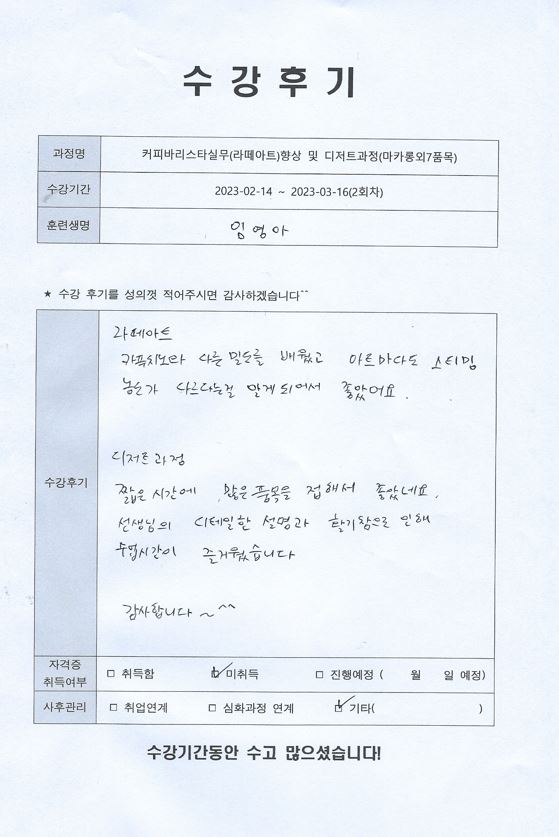 수강후기
과정명 커피바리스타실무(라떼아트)향상 및 디저트과정(마카롱외7품목)
수강기간 2023-02-14 ~ 2023-03-16(2회차)
훈련생명 임영아
★ 수강 후기를 성의껏 적어주시면 감사하겠습니다^^
라떼아트
카푸치노와 다른 밀도를 배웠고 아트마다도 스티밍
농도가 다르다는걸 알게되어서 좋았어요.
수강후기
디저트과정
짧은시간에 많은품목을 접해서 좋았네요.
선생님의 디테일한 설명과 활기참으로 인해
수업시간이 즐거웠습니다
감사합니다~^^
자격증
취득여부 □ 취득함 ☑ 미취득 □ 진행예정 ( 월 일 예정)
사후관리 □ 취업연계 □ 심화과정 연계 ☑ 기타( )
수강기간동안 수고 많으셨습니다!